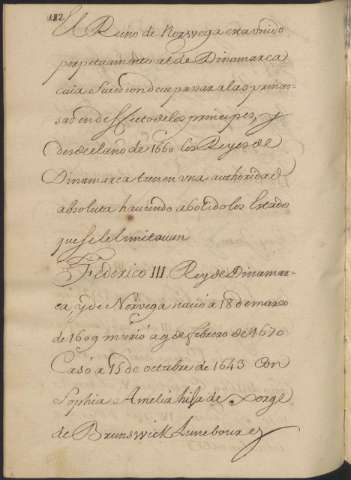 182
El Reino de Norwega esta unido
perpetuamente al de Dinamarca
cuia sucesion deue pasar a las prince-
sas en defecto de los principes, y
desde el año de 1660 los Reyes de
Dinamarca tienen una authoridad
absoluta hauiendo abolido los Estados
que se le limitauan
Federico III Rey de Dinamar-
ca y de Norvega nacio a 18 de marzo
de 1609 murio a 9 de febrero de 1670
Casó a 15 de octubre de 1643 con
Sophia Amelia hija de Jorge
de Brunswick Lunebourg